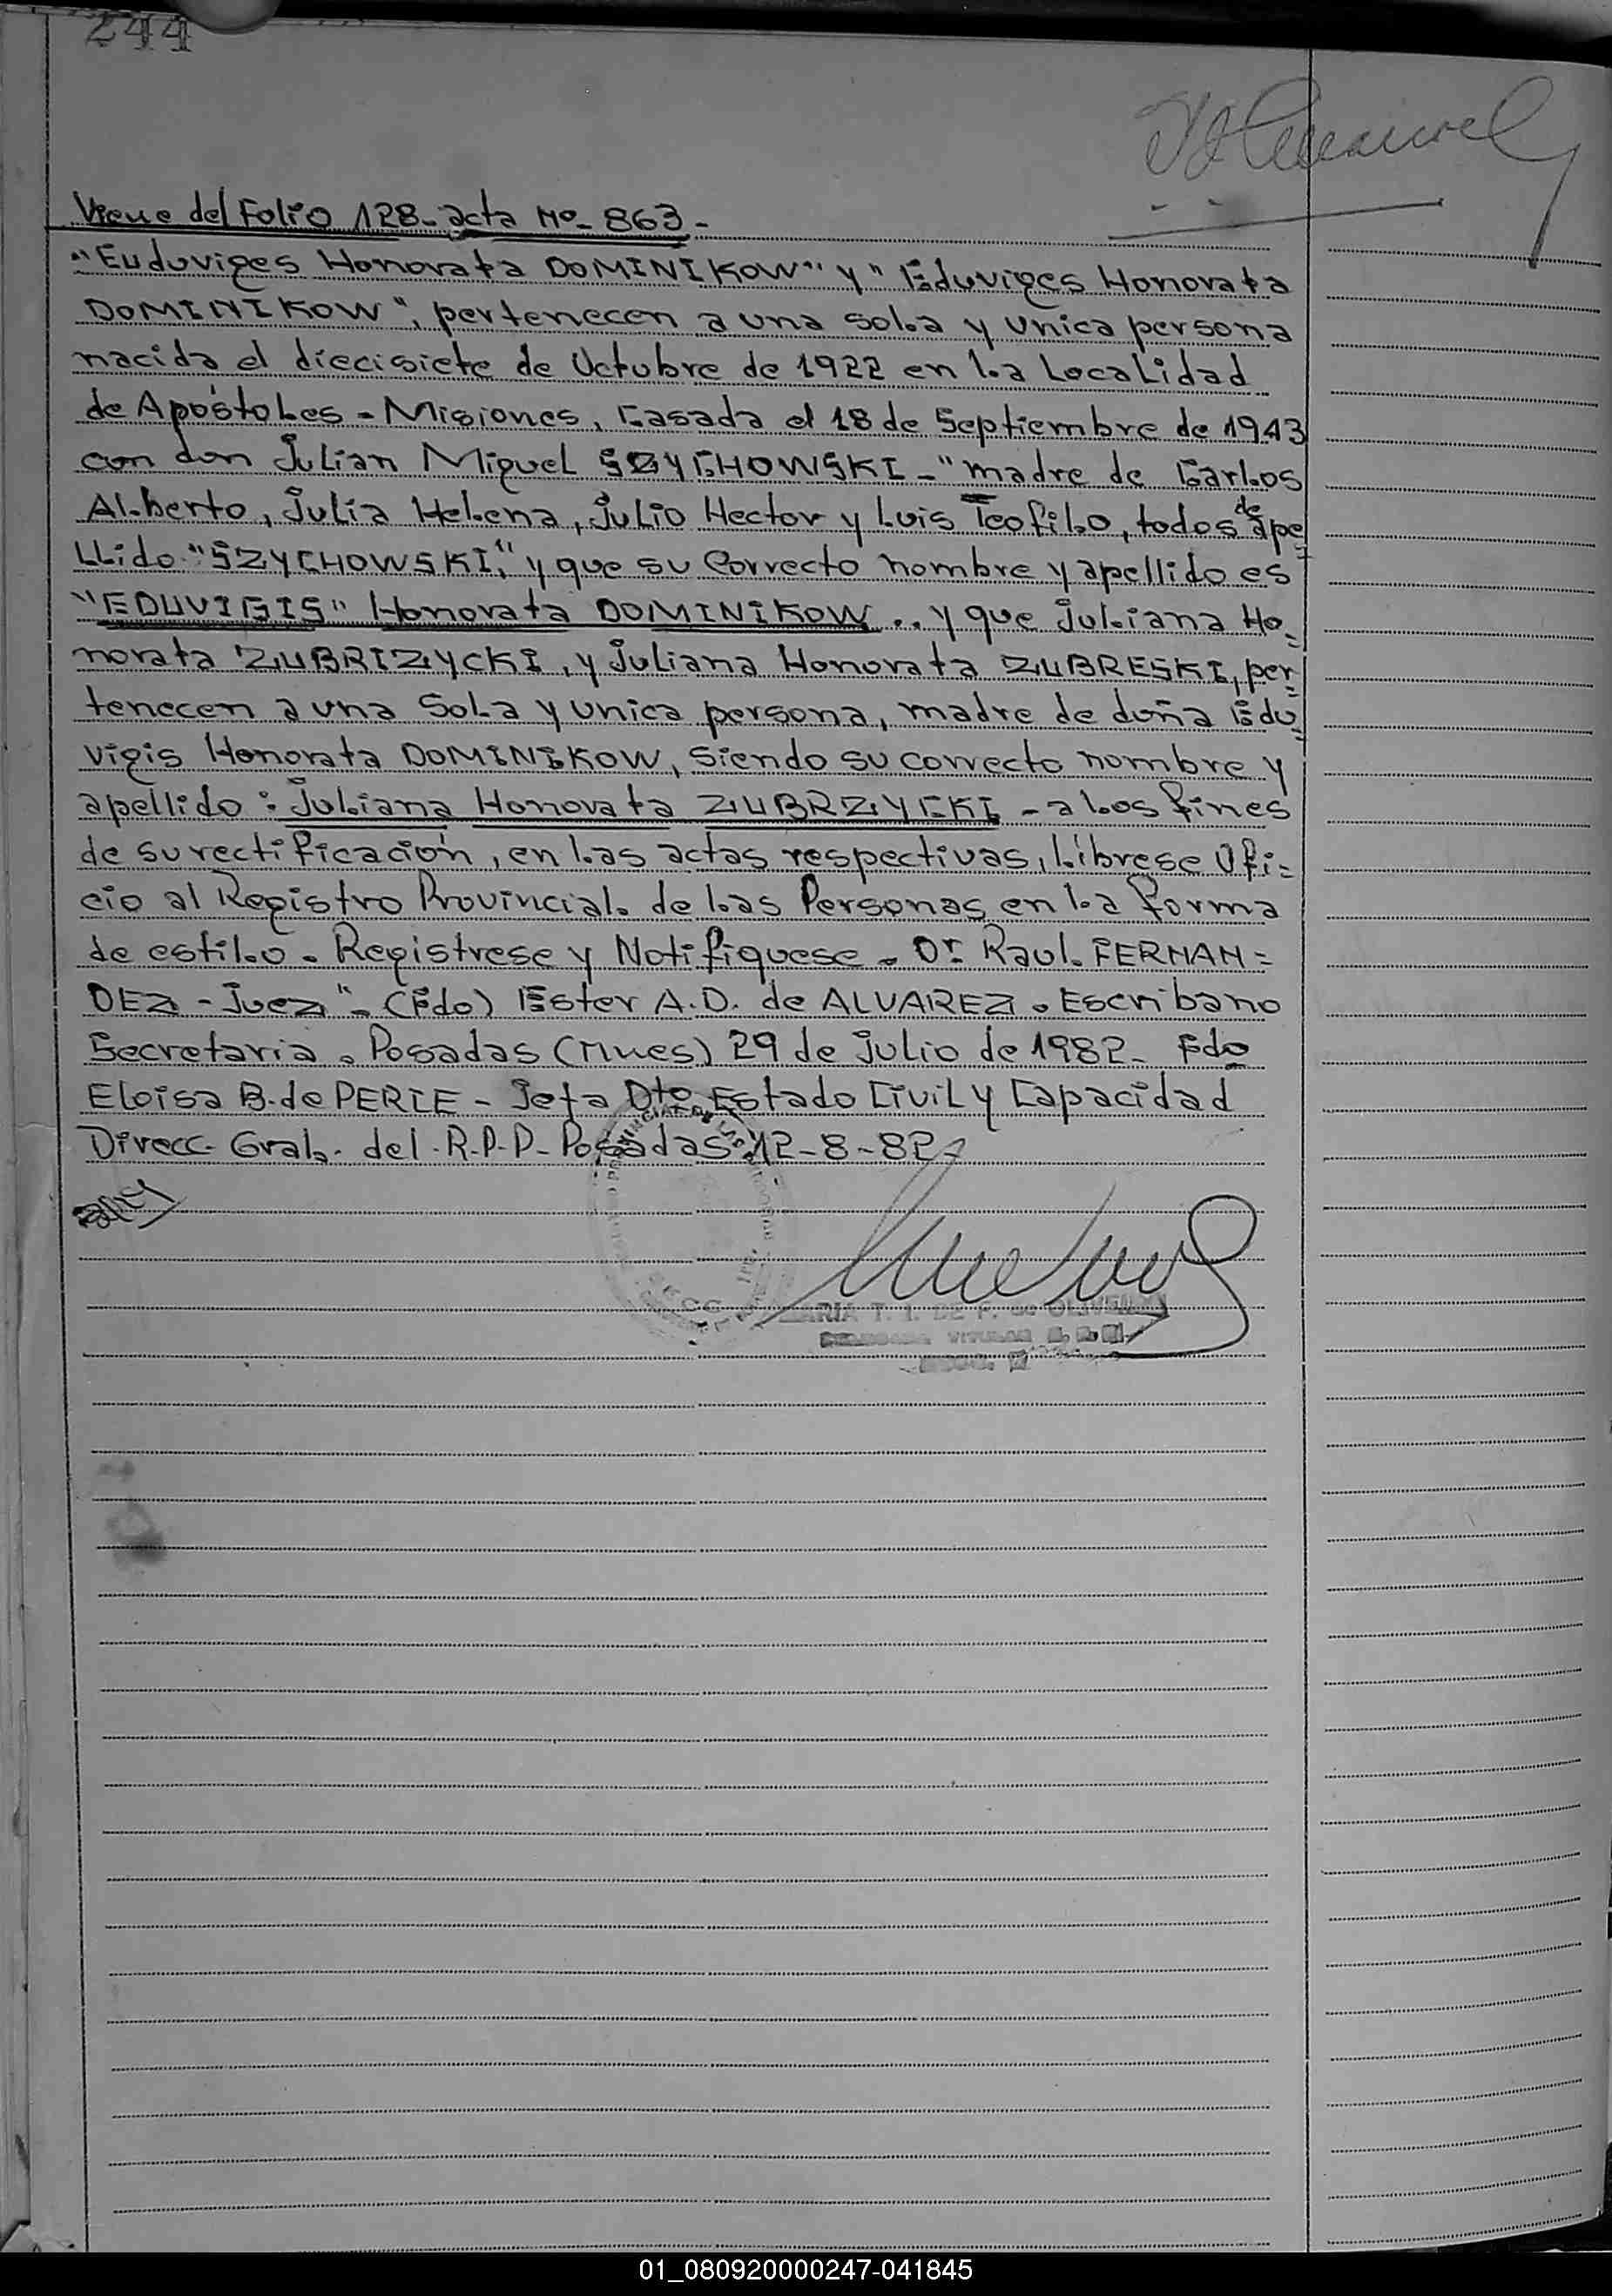 244
Viene del Folio 128- acta Nº- 863-
"Euduviges Honorata DOMINIKOW" y "Eduviges Honorata
DOMINIKOW", pertenecen a una sola y unica persona
nacida el diecisiete de Octubre de 1922 en la Localidad
de Apóstoles - Misiones, Casada el 18 de Septiembre de 1943
con don Julian Miguel SZYCHOWSKI - "madre de Carlos
Alberto, Julia Helena, Julio Hector y Luis Teofilo, todos de ape=
llido "SZYCHOWSKI," y que su Correcto nombre y apellido es
"EDUVIGIS" Honorata DOMINIKOW .. y que Juliana Ho=
norata ZUBRIZYCKI, y Juliana Honorata ZUBRESKI, per=
tenecen a una Sola y unica persona, madre de doña Edu=
vigis Honorata DOMINIKOW, siendo su correcto nombre y
apellido: Juliana Honorata ZUBRZYCKI - a los fines
de su rectificación, en las actas respectivas, Líbrese Ofi=
cio al Registro Provincial de las Personas en la forma
de estilo. Registrese y Notifiquese. Dr. Raul FERNAN=
DEZ - Juez". (Fdo) Ester A.D. de ALVAREZ. Escribano
Secretaria. Posadas (Mnes) 29 de Julio de 1982- Fdo
Eloisa B. de PERIE - Jefa Dto Estado Civil y Capacidad
Direcc. Gral. del R.P.P- Posadas 12-8-82-
MARIA T. I. DE F. de OLIVEIRA
01_080920000247-041845